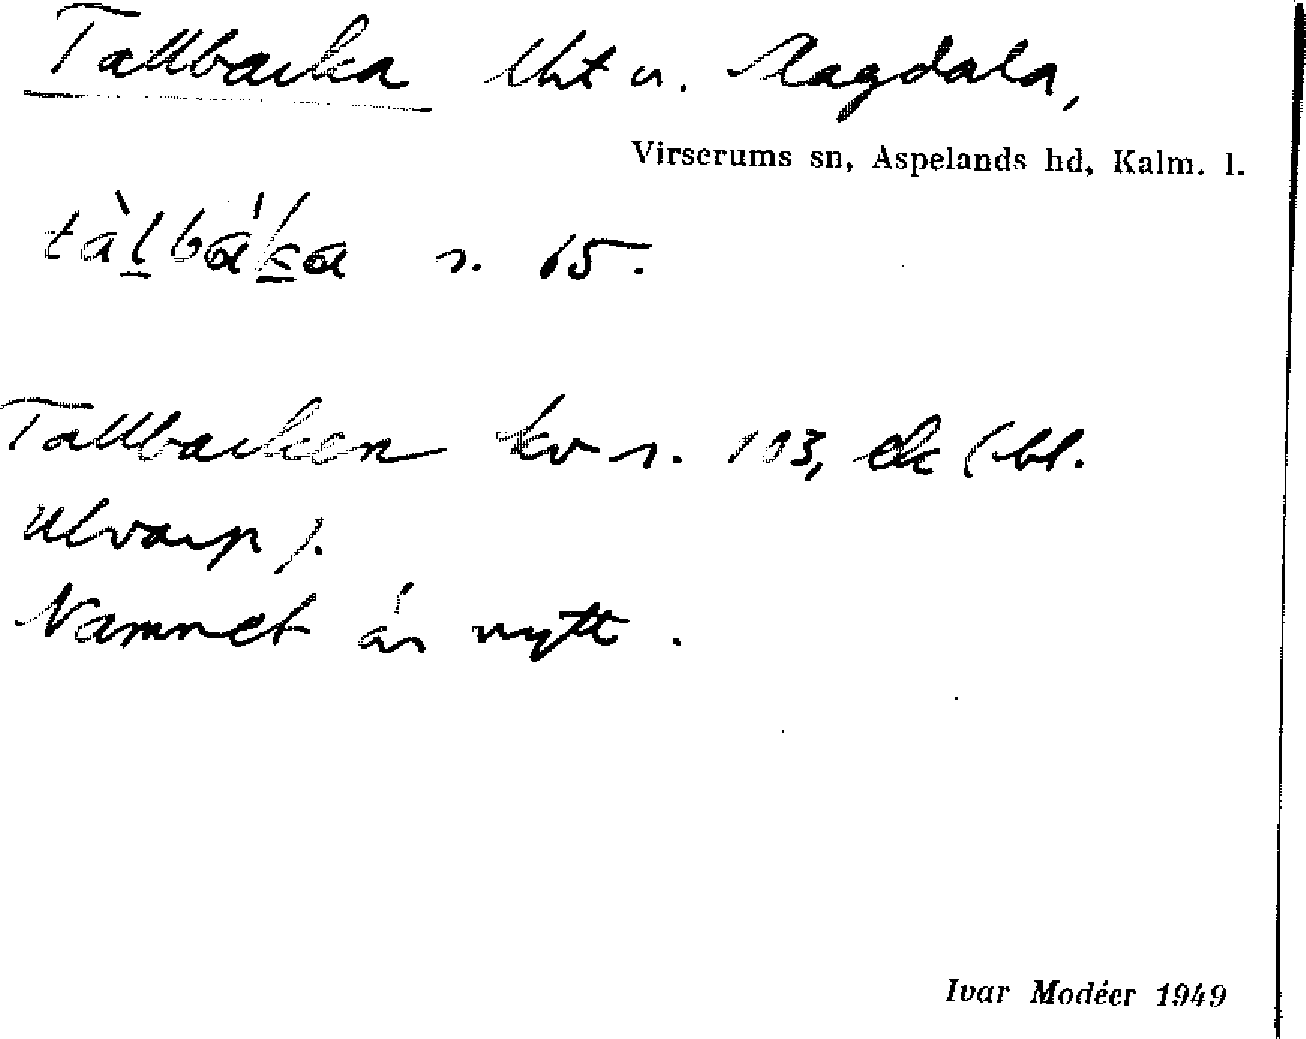 Tallbacka lht u. Magdala,
Virserums sn, Aspelands hd, Kalm. l.
tàlbáka s. 65.
Tallbacken kv s. 103, ek (bl.
Ulvarp).
Namnet är nytt.
Ivar Modéer 1949